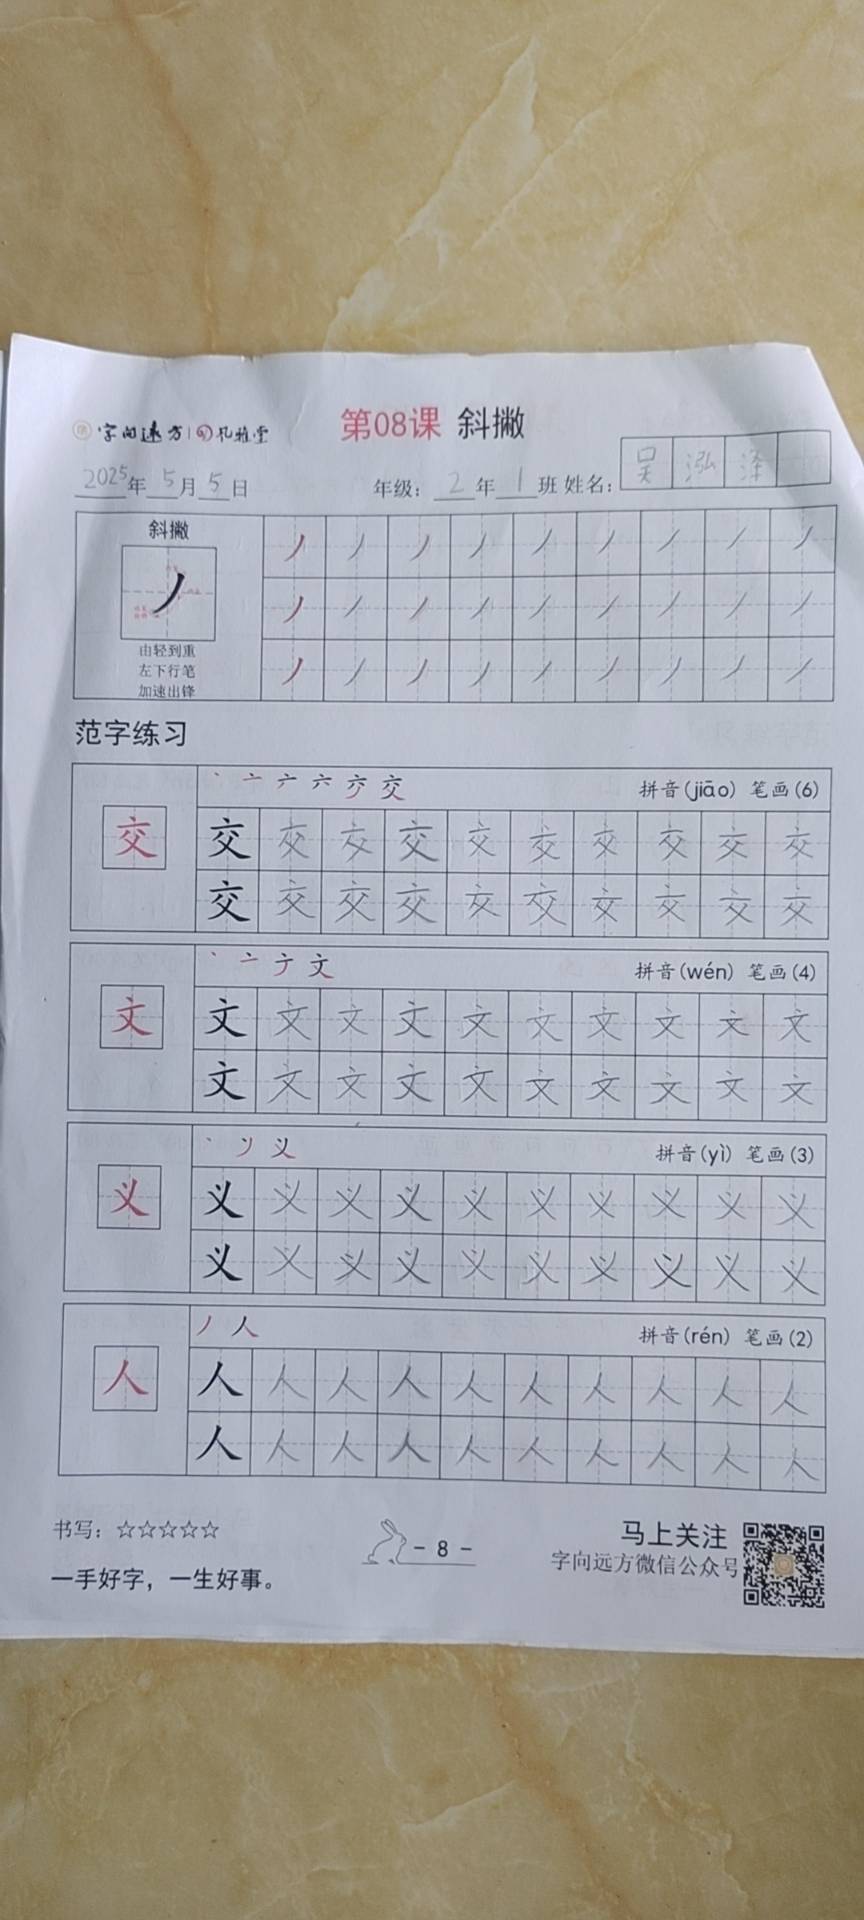 字向远方 孔雅堂
第08课 斜撇
2025年5月5日 年级：2年1班 姓名：吴泓泽
斜撇
由轻到重
左下行笔
加速出锋
范字练习
拼音(jiāo) 笔画(6)
交 交 交 交 交 交 交 交 交 交 交
交 交 交 交 交 交 交 交 交 交
拼音(wén) 笔画(4)
文 文 文 文 文 文 文 文 文 文 文
文 文 文 文 文 文 文 文 文 文
拼音(yì) 笔画(3)
义 义 义 义 义 义 义 义 义 义 义
义 义 义 义 义 义 义 义 义 义
拼音(rén) 笔画(2)
人 人 人 人 人 人 人 人 人 人 人
人 人 人 人 人 人 人 人 人 人
书写：☆☆☆☆☆
一手好字，一生好事。
- 8 -
马上关注
字向远方微信公众号